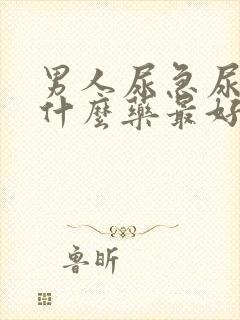 男人尿急尿
什麼藥最好
魯昕